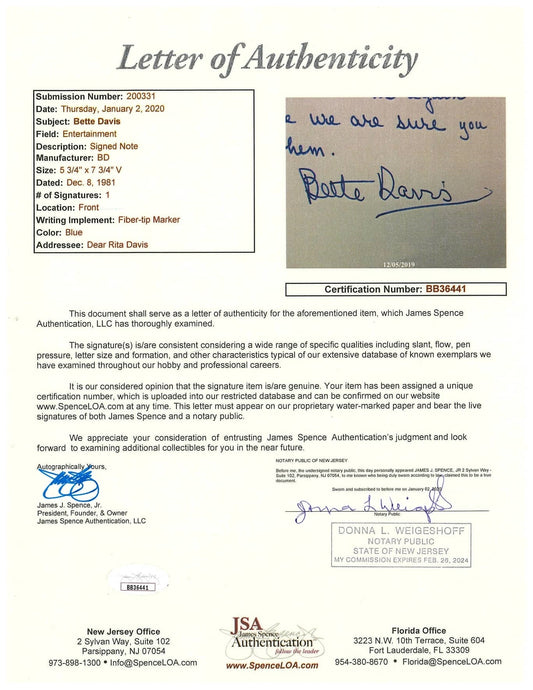 Letter of Authenticity
Submission Number: 200331
Date: Thursday, January 2, 2020
Subject: Bette Davis
Field: Entertainment
Description: Signed Note
Manufacturer: BD
Size: 5 3/4" x 7 3/4" V
Dated: Dec. 8, 1981
# of Signatures: 1
Location: Front
Writing Implement: Fiber-tip Marker
Color: Blue
Addressee: Dear Rita Davis
e we are sure you
hem.
Bette Davis
12/05/2019
Certification Number: BB36441
This document shall serve as a letter of authenticity for the aforementioned item, which James Spence
Authentication, LLC has thoroughly examined.
The signature(s) is/are consistent considering a wide range of specific qualities including slant, flow, pen
pressure, letter size and formation, and other characteristics typical of our extensive database of known exemplars we
have examined throughout our hobby and professional careers.
It is our considered opinion that the signature item is/are genuine. Your item has been assigned a unique
certification number, which is uploaded into our restricted database and can be confirmed on our website
www.SpenceLOA.com at any time. This letter must appear on our proprietary water-marked paper and bear the live
signatures of both James Spence and a notary public.
We appreciate your consideration of entrusting James Spence Authentication's judgment and look
forward to examining additional collectibles for you in the near future.
Autographically Yours,
James J. Spence, Jr.
President, Founder, & Owner
James Spence Authentication, LLC
NOTARY PUBLIC OF NEW JERSEY
Before me, the undersigned notary public, this day personally appeared JAMES J. SPENCE, JR 2 Sylvan Way -
Suite 102, Parsippany, NJ 07054, to me known who being duly sworn according to law, claimed this to be a true
document.
Sworn and subscribed to before me on January 02, 2020
Donna L Weigeshoff
Notary Public
DONNA L. WEIGESHOFF
NOTARY PUBLIC
STATE OF NEW JERSEY
MY COMMISSION EXPIRES FEB. 26, 2024
BB36441
New Jersey Office
2 Sylvan Way, Suite 102
Parsippany, NJ 07054
973-898-1300 • Info@SpenceLOA.com
JSA
James Spence
Authentication
follow the leader
www.SpenceLOA.com
Florida Office
3223 N.W. 10th Terrace, Suite 604
Fort Lauderdale, FL 33309
954-380-8670 • Florida@SpenceLOA.com